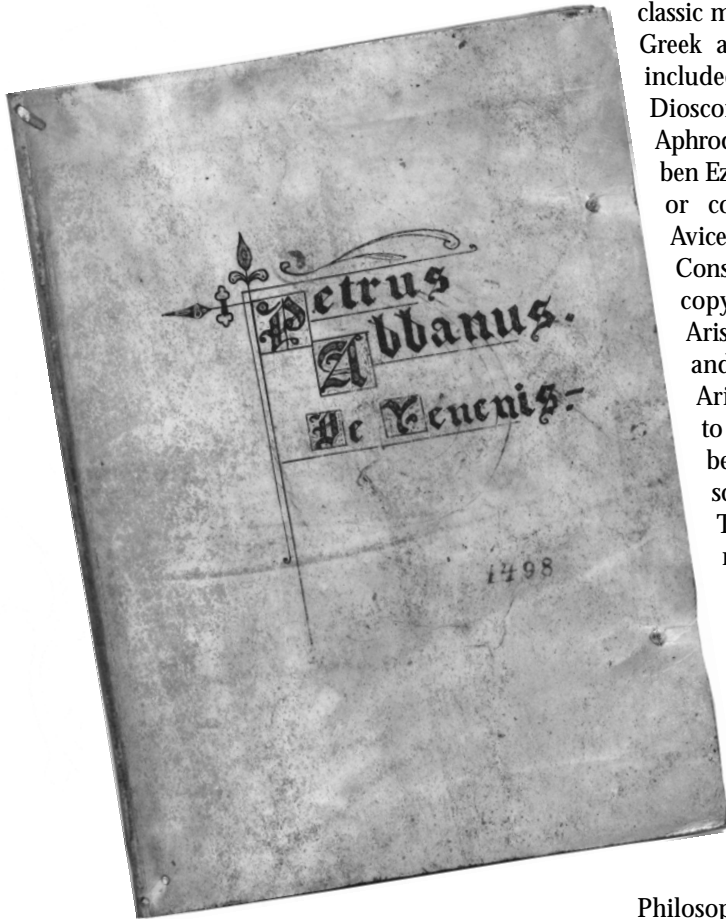 Petrus
Abbanus.
De Venenis:-
1498
classic m
Greek a
include
Diosco
Aphrod
ben Ez
or co
Avice
Cons
copy
Aris
and
Ari
to
be
so
T
Philosop